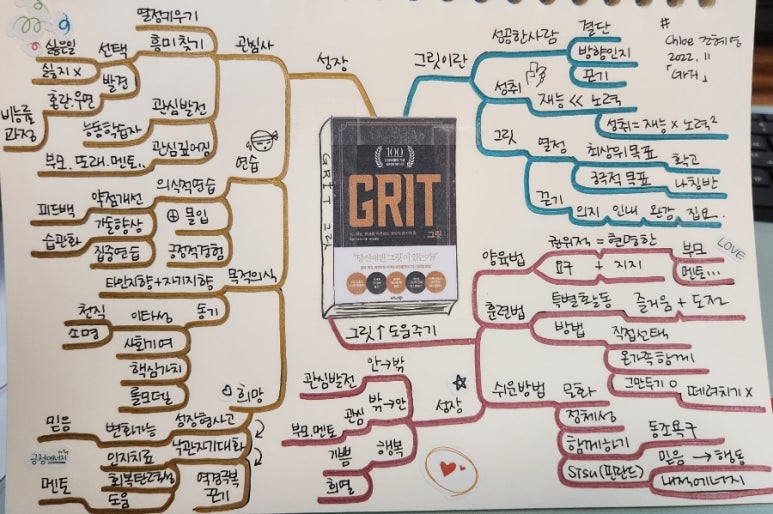 #
Chloe
2022. 11
「GRIT」
그릿이란
성공한사람
결단
방향인지
끈기
성취
재능 << 노력
성취=재능 x 노력²
그릿
열정
최상위목표
궁극적 목표
나침반
끈기
의지 인내
100
GRIT
그릿
GRIT 그릿
그릿↑도움주기
양육법
권위적 = 현명한
요구 + 지지
부모
멘토...
LOVE
훈련법
특별활동
즐거움 + 도전
방법
직접선택
온가족함께
그만두기 O
때려치기 X
쉬운방법
문화
정체성
함께하기
동조욕구
Sisu(핀란드)
믿음 → 행동
내적에너지
성장
안→밖
관심발전
밖→안
관심
부모.멘토
행복
기쁨
희열
성장
관심사
열정키우기
흥미찾기
선택
싫은일
싫지 x
발견
혼란.우연
비능률
과정
관심발전
능동학습자
관심깊어짐
부모. 또래. 멘토..
연습
의식적연습
약점개선
피드백
가동향상
습관화
집중연습
⊕ 몰입
긍정적경험
목적의식
타인지향+자기지향
동기
이타성
천직
소명
사회기여
핵심가치
롤모델
희망
성장형사고
변화가능
믿음
낙관자기대화
인지치료
긍정에너지
회복탄력성
역경극복
끈기
멘토
도움